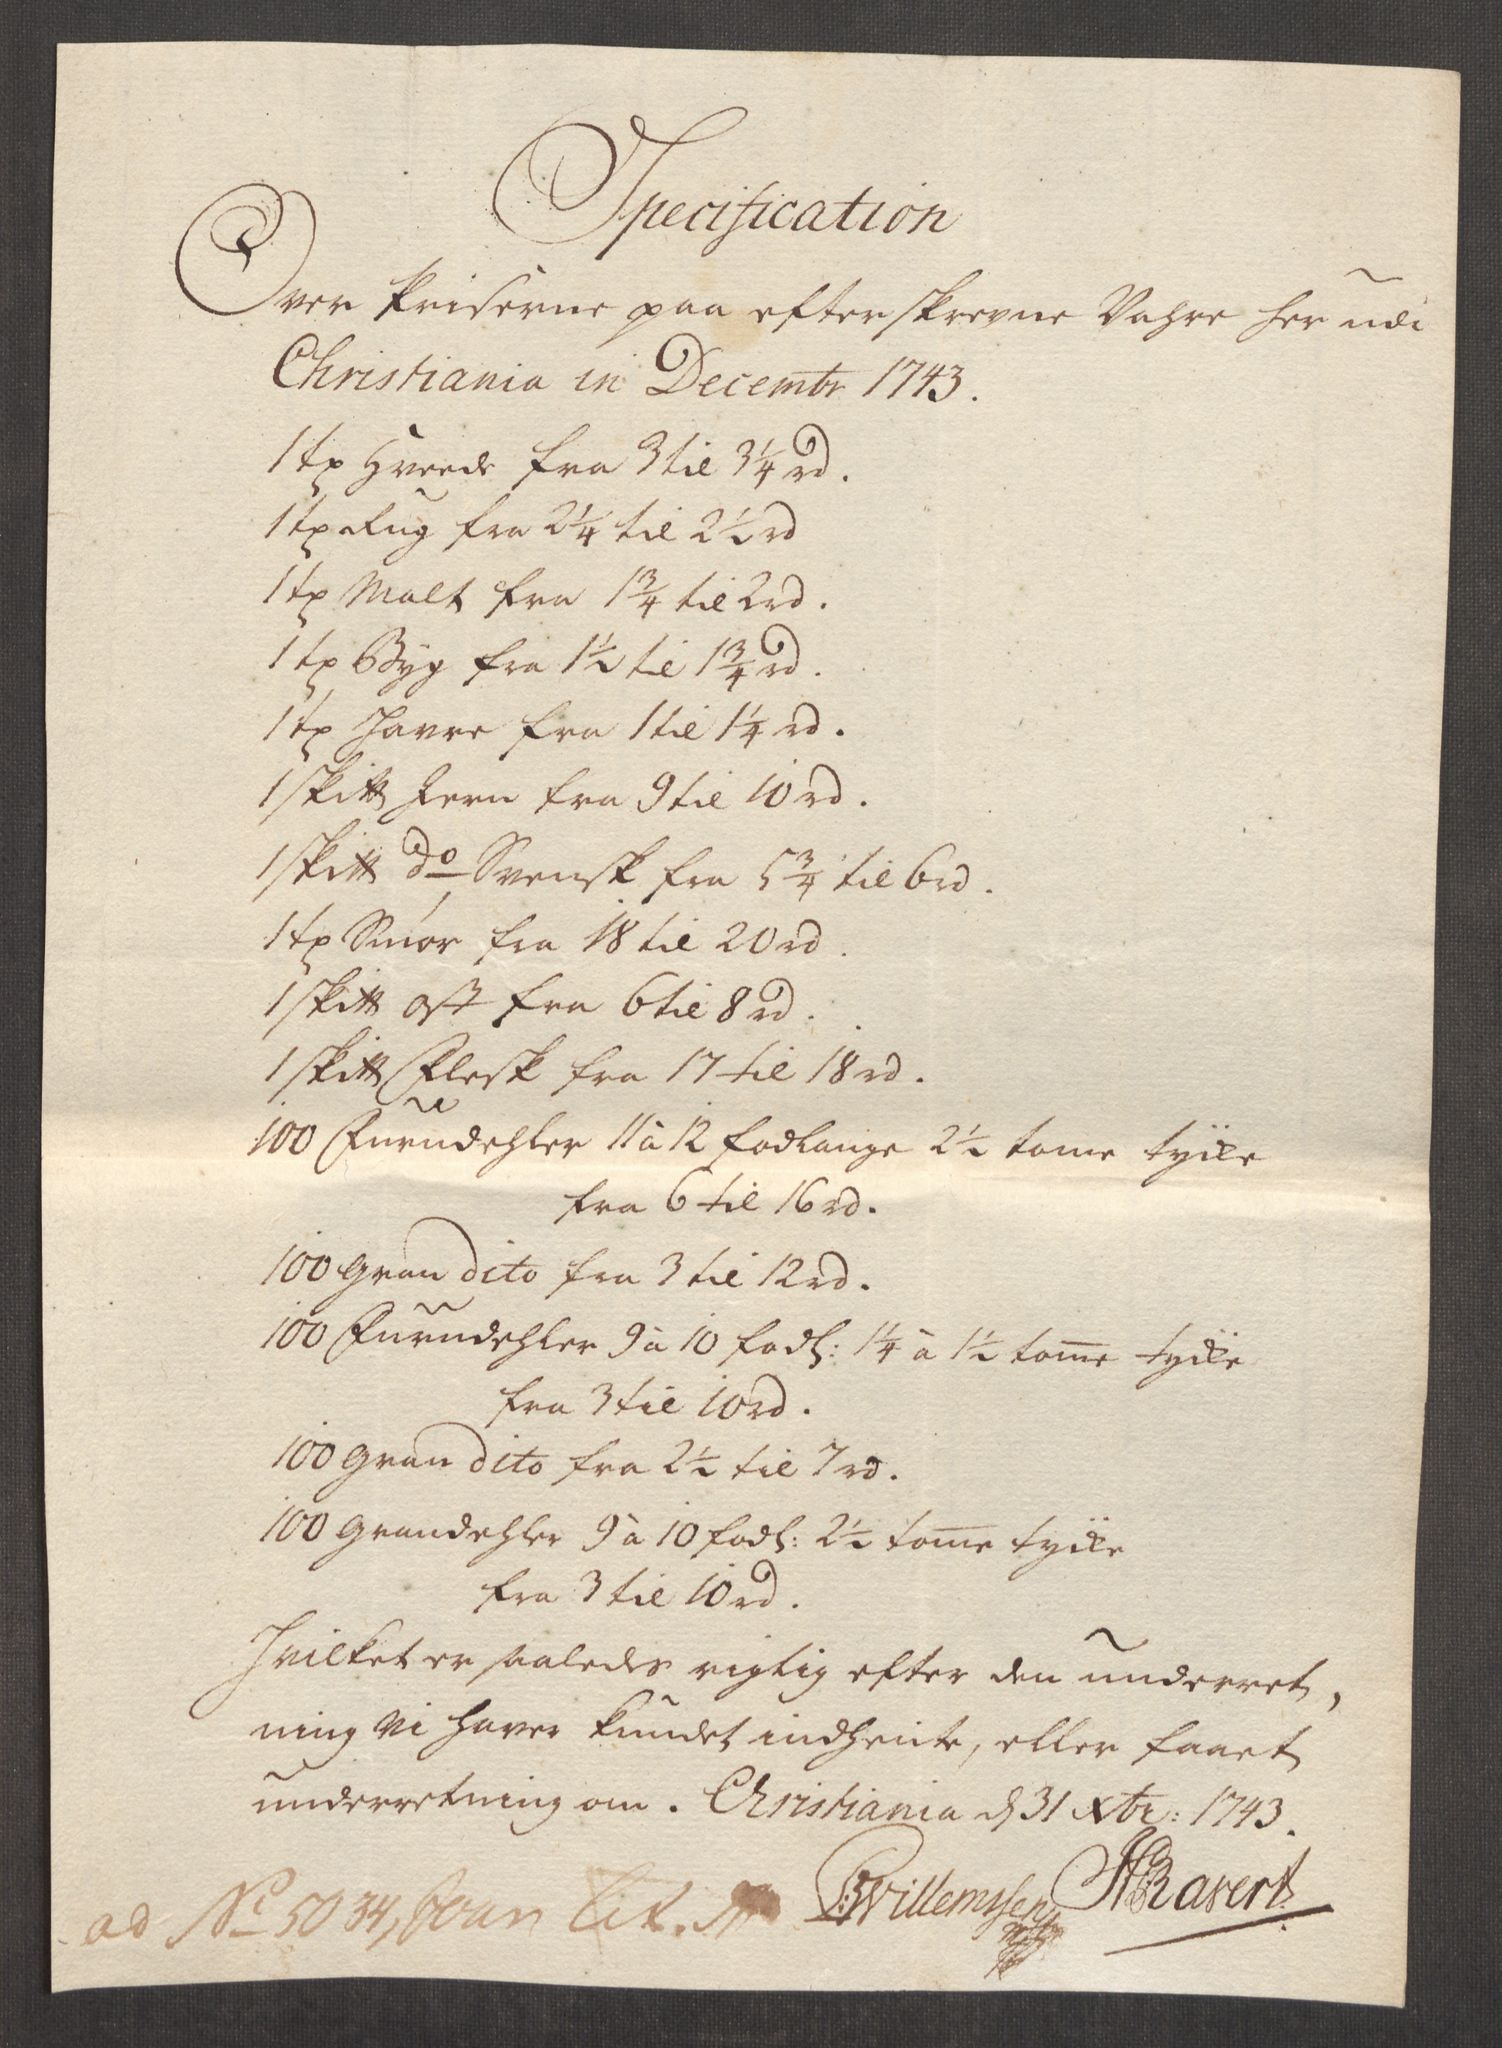 Specification
Over Priserne paa efterskrevne Vahre her udi
Christiania in Decembr 1743.
1 tp Hveede fra 3 til 3 1/4 rd.
1 tp Rug fra 2 1/4 til 2 1/2 rd
1 tp Malt fra 1 3/4 til 2 rd.
1 tp Byg fra 1 1/2 til 1 3/4 rd.
1 tp Havre fra 1 til 1 1/4 rd.
1 skitt Jern fra 9 til 10 rd.
1 skitt do Svensk fra 5 3/4 til 6 rd.
1 tp Smör fra 18 til 20 rd.
1 skitt ost fra 6 til 8 rd.
1 skitt Flesk fra 17 til 18 rd.
100 Furudehler 11 à 12 fodlange 2 1/2 tome tyke
fra 6 til 16 rd.
100 gran dito fra 3 til 12 rd.
100 Furudehler 9 à 10 fodl: 1 1/4 à 1 1/2 tome tyke
fra 3 til 10 rd.
100 gran dito fra 2 1/2 til 7 rd.
100 grandehler 9 à 10 fodl: 2 1/2 tome tyke
fra 3 til 10 rd.
Hvilket er saaledes rigtig efter den underret,
ning vi haver kundet indhente, eller faaet
underretning om. Christiania d 31 xbr: 1743.
Willemssen HBRavert
ad No 5034, Lit.